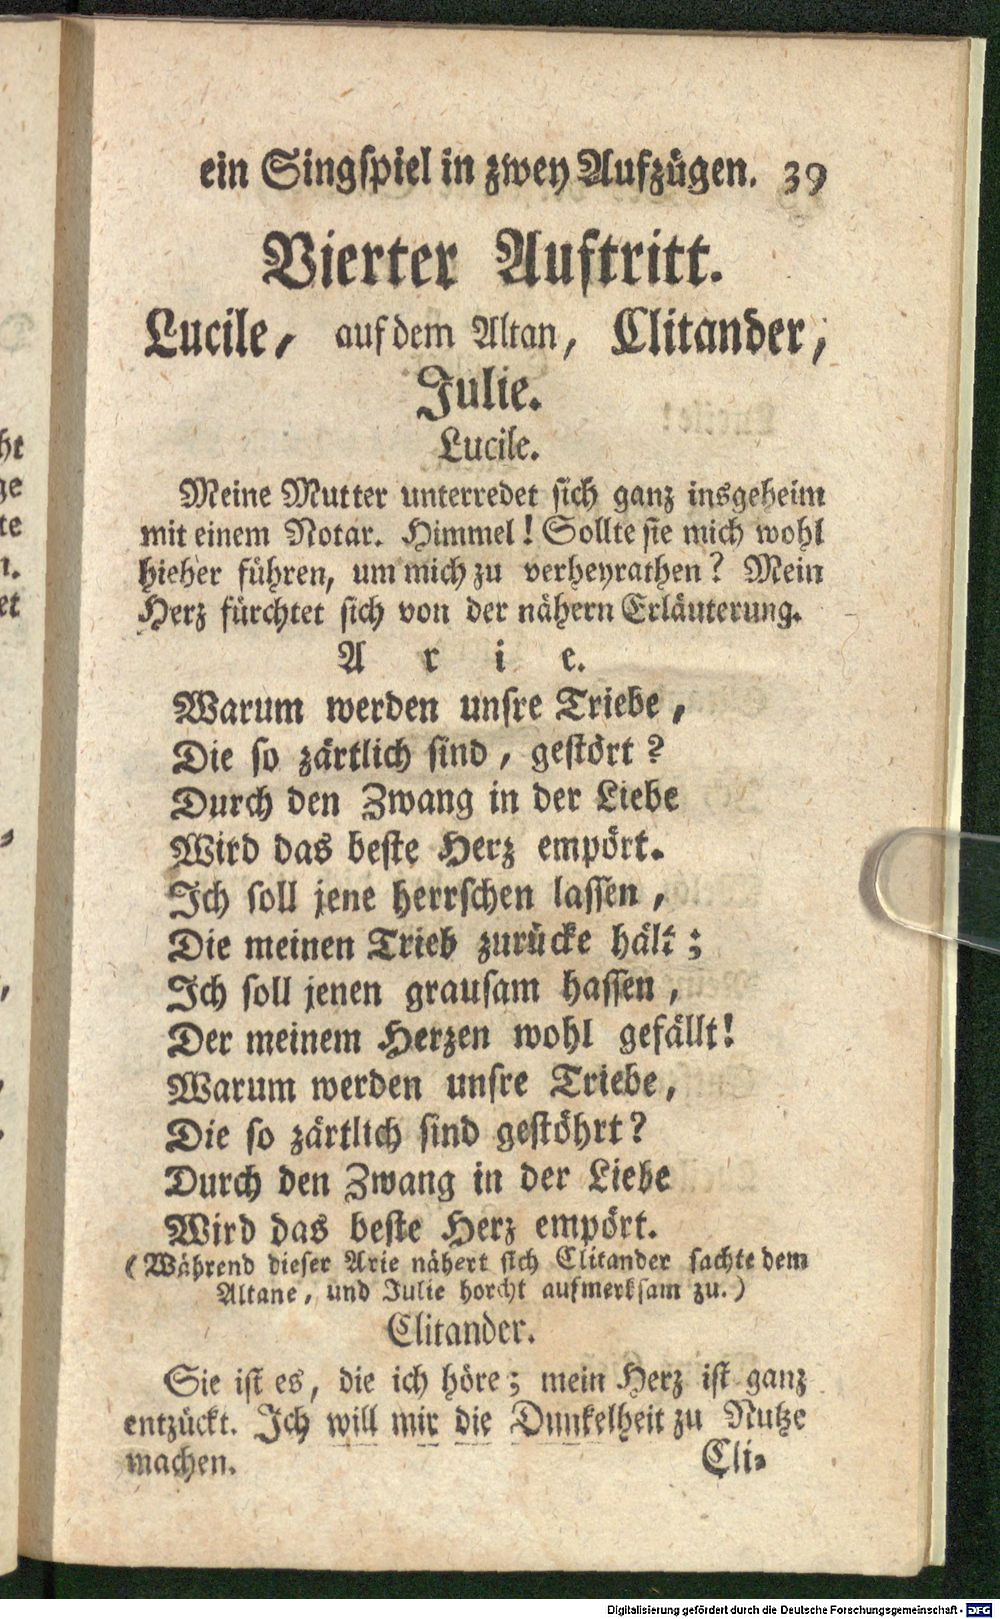 ein Singspiel in zwey Aufzügen. 39
Vierter Auftritt.
Lucile, auf dem Altan, Clitander,
Julie.
Lucile.
Meine Mutter unterredet sich ganz insgeheim
mit einem Notar. Himmel! Sollte sie mich wohl
hieher führen, um mich zu verheyrathen? Mein
Herz fürchtet sich von der nähern Erläuterung.
A r i e.
Warum werden unsre Triebe,
Die so zärtlich sind, gestört?
Durch den Zwang in der Liebe
Wird das beste Herz empört.
Ich soll jene herrschen lassen,
Die meinen Trieb zurücke hält;
Ich soll jenen grausam hassen,
Der meinem Herzen wohl gefällt!
Warum werden unsre Triebe,
Die so zärtlich sind gestöhrt?
Durch den Zwang in der Liebe
Wird das beste Herz empört.
(Während dieser Arie nähert sich Clitander sachte dem
Altane, und Julie horcht aufmerksam zu.)
Clitander.
Sie ist es, die ich höre; mein Herz ist ganz
entzückt. Ich will mir die Dunkelheit zu Nutze
machen. Cli-
Digitalisierung gefördert durch die Deutsche Forschungsgemeinschaft - DFG